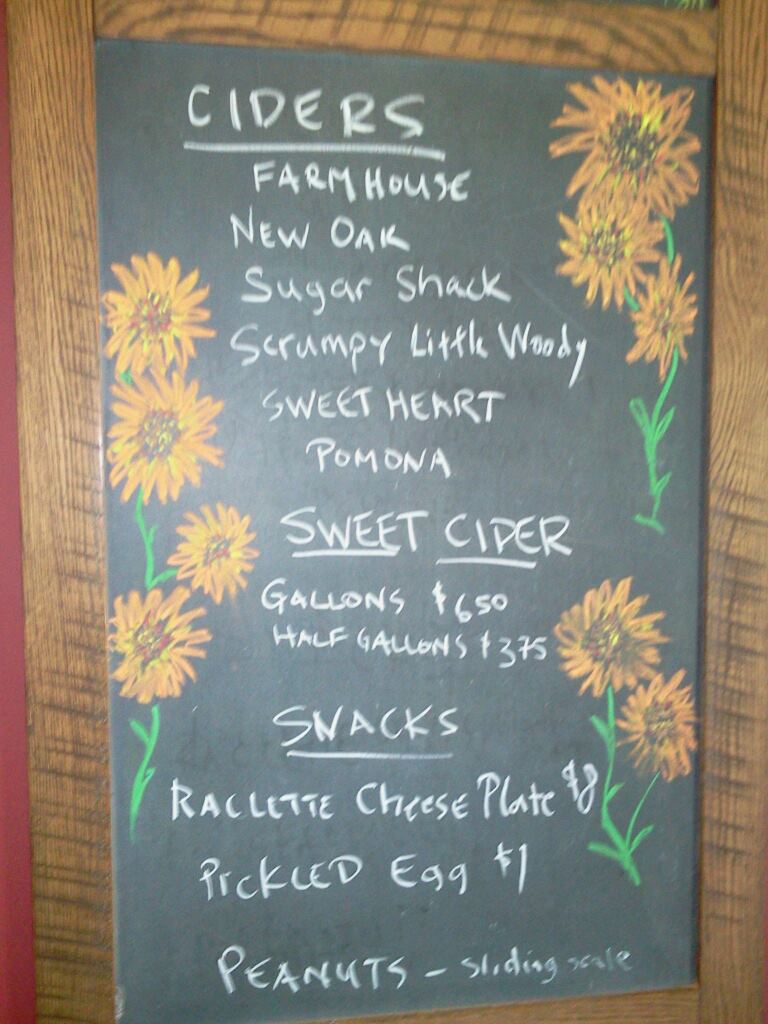 CIDERS
FARMHOUSE
NEW OAK
Sugar Shack
Scrumpy Little Woody
SWEET HEART
POMONA
SWEET CIDER
GALLONS $650
HALF GALLONS $375
SNACKS
RACLETTE Cheese Plate $8
PICKLED Egg $1
PEANUTS - sliding scale